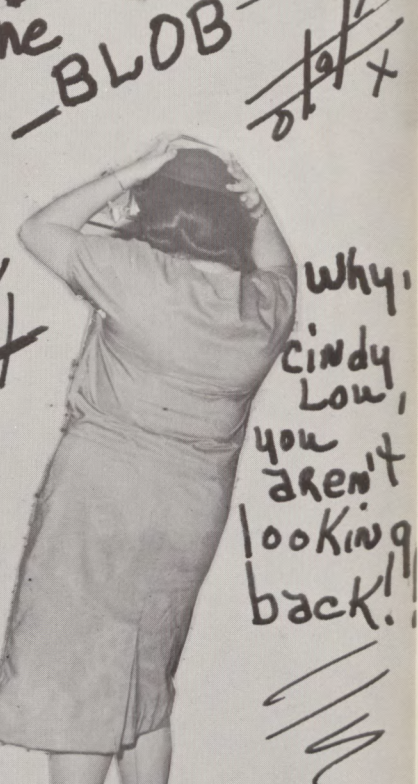 me
BLOB
O
X
O
Why,
cindy
Lou,
you
aren't
looking
back!!